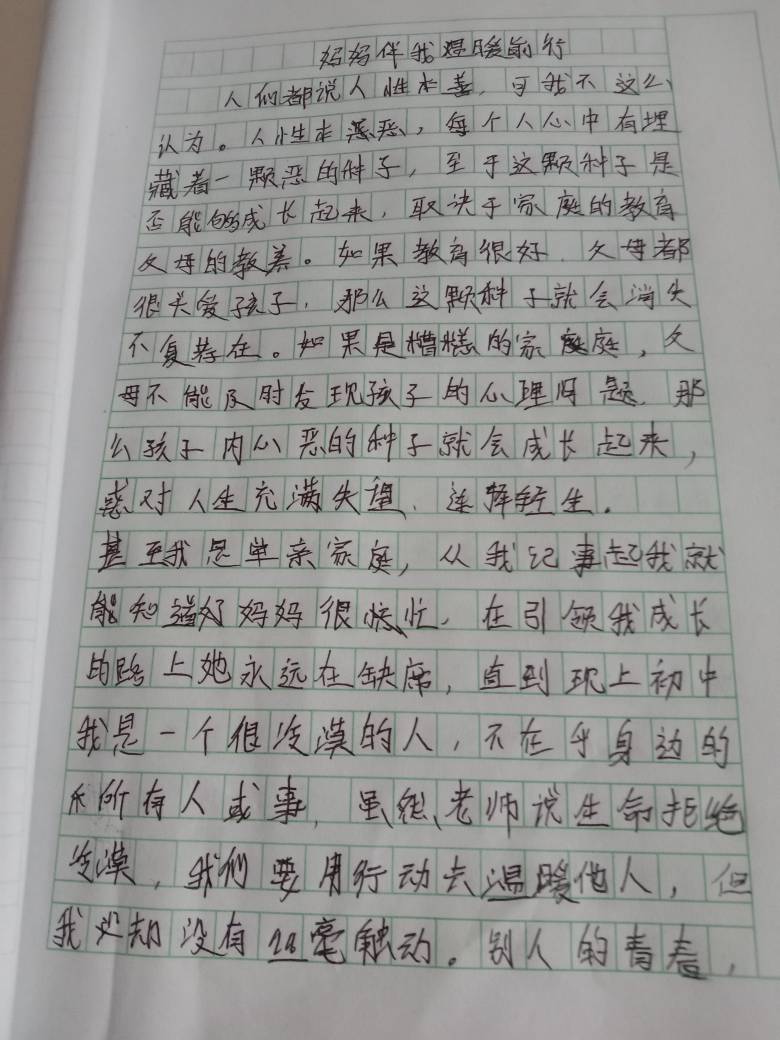 妈妈伴我温暖前行
人们都说人性本善，可我不这么
认为。人性本恶，每个人心中有埋
藏着一颗恶的种子，至于这颗种子是
否能够成长起来，取决于家庭的教育
父母的教养。如果教育很好，父母都
很关爱孩子，那么这颗种子就会消失
不复存在。如果是糟糕的家庭，父
母不能及时发现孩子的心理问题，那
么孩子内心恶的种子就会成长起来，
对人生充满失望，选择轻生。
我是单亲家庭，从我记事起我就
能知道妈妈很忙，在引领我成长
的路上她永远在缺席，直到现上初中
我是一个很冷漠的人，不在乎身边的
所有人或事，虽然老师说生命拒绝
冷漠，我们要用行动去温暖他人，但
我却没有丝毫触动。别人的青春，